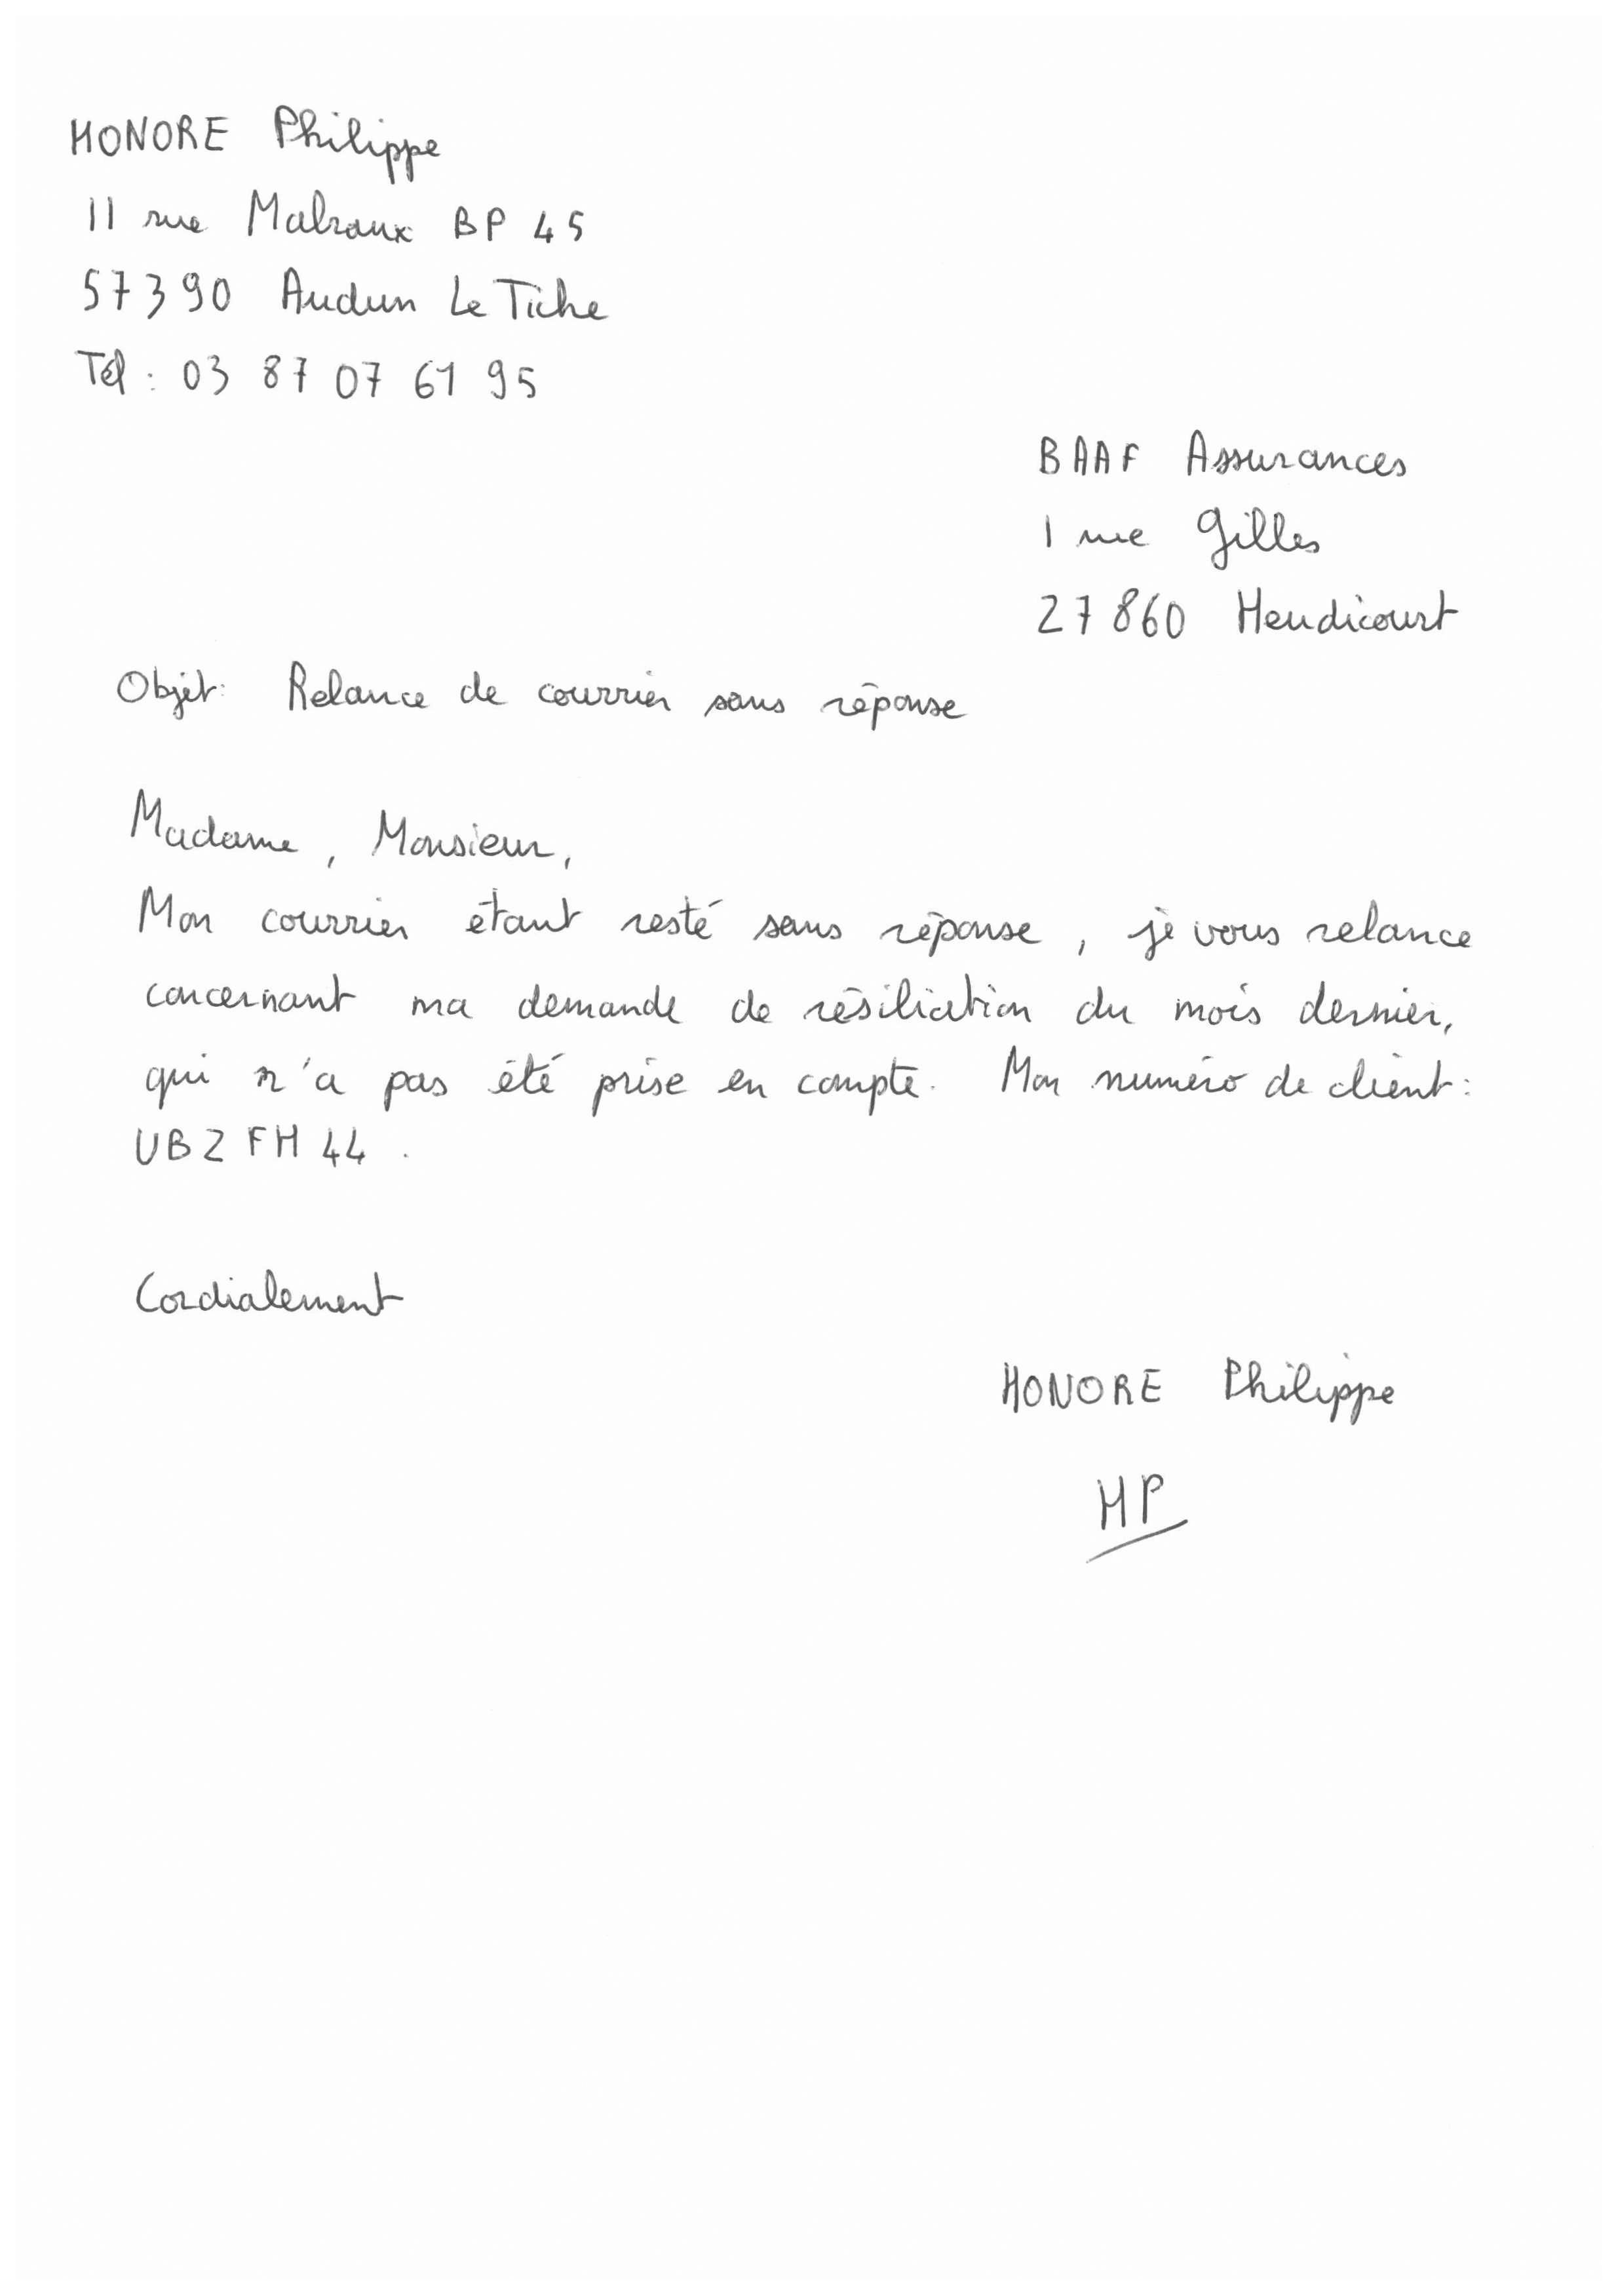 HONORE Philippe
11 rue Malraux BP 45
57390 Audun Le Tiche
Tél : 03 87 07 61 95
BAAF Assurances
1 rue Gilles
27860 Heudicourt
Objet : Relance de courrier sans réponse
Madame, Monsieur,
Mon courrier étant resté sans réponse, je vous relance
concernant ma demande de résiliation du mois dernier,
qui n'a pas été prise en compte. Mon numéro de client :
UBZFH44.
Cordialement
HONORE Philippe
HP